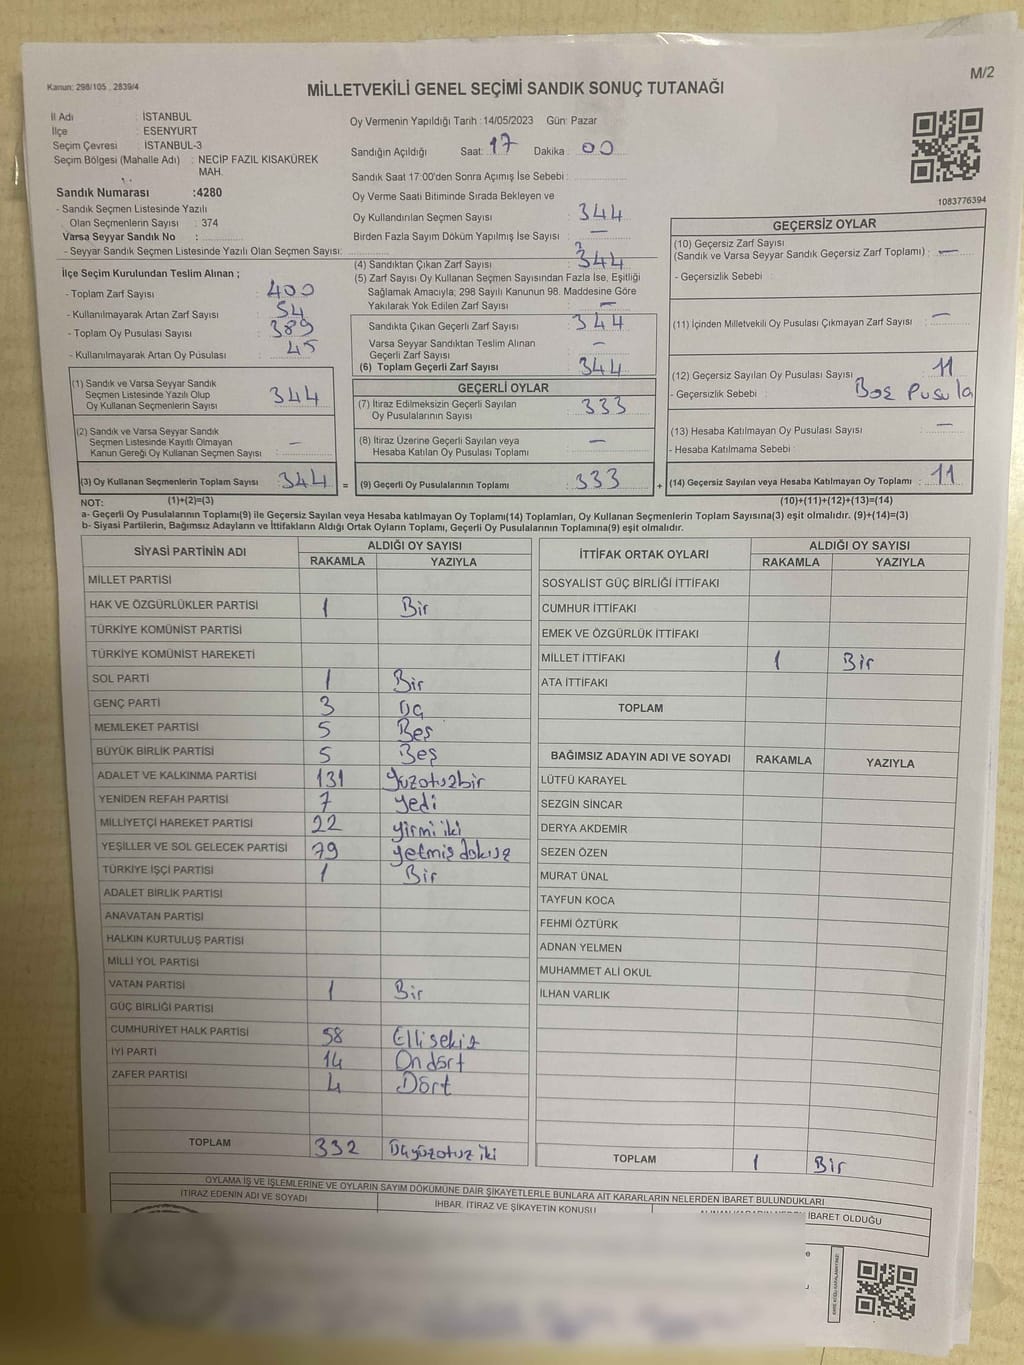 M/2
Kanun: 298/105 , 2839/4
MİLLETVEKİLİ GENEL SEÇİMİ SANDIK SONUÇ TUTANAĞI
İl Adı : İSTANBUL
İlçe : ESENYURT
Seçim Çevresi : İSTANBUL-3
Seçim Bölgesi (Mahalle Adı) : NECİP FAZIL KISAKÜREK MAH.
Sandık Numarası :4280
- Sandık Seçmen Listesinde Yazılı
Olan Seçmenlerin Sayısı : 374
Varsa Seyyar Sandık No :
- Seyyar Sandık Seçmen Listesinde Yazılı Olan Seçmen Sayısı:
İlçe Seçim Kurulundan Teslim Alınan ;
- Toplam Zarf Sayısı : 400
- Kullanılmayarak Artan Zarf Sayısı : 54
- Toplam Oy Pusulası Sayısı : 389
- Kullanılmayarak Artan Oy Pusulası : 45
(1) Sandık ve Varsa Seyyar Sandık
Seçmen Listesinde Yazılı Olup
Oy Kullanan Seçmenlerin Sayısı : 344
(2) Sandık ve Varsa Seyyar Sandık
Seçmen Listesinde Kayıtlı Olmayan
Kanun Gereği Oy Kullanan Seçmen Sayısı : –
(3) Oy Kullanan Seçmenlerin Toplam Sayısı : 344
(1)+(2)=(3)
Oy Vermenin Yapıldığı Tarih : 14/05/2023 Gün: Pazar
Sandığın Açıldığı Saat: 17 Dakika : 00
Sandık Saat 17:00'den Sonra Açımış İse Sebebi :
Oy Verme Saati Bitiminde Sırada Bekleyen ve
Oy Kullandırılan Seçmen Sayısı : 344
Birden Fazla Sayım Döküm Yapılmış İse Sayısı : –
(4) Sandıktan Çıkan Zarf Sayısı : 344
(5) Zarf Sayısı Oy Kullanan Seçmen Sayısından Fazla İse, Eşitliği
Sağlamak Amacıyla, 298 Sayılı Kanunun 98. Maddesine Göre
Yakılarak Yok Edilen Zarf Sayısı : –
Sandıkta Çıkan Geçerli Zarf Sayısı : 344
Varsa Seyyar Sandıktan Teslim Alınan
Geçerli Zarf Sayısı : –
(6) Toplam Geçerli Zarf Sayısı : 344
GEÇERLİ OYLAR
(7) İtiraz Edilmeksizin Geçerli Sayılan
Oy Pusulalarının Sayısı : 333
(8) İtiraz Üzerine Geçerli Sayılan veya
Hesaba Katılan Oy Pusulası Toplamı : –
= (9) Geçerli Oy Pusulalarının Toplamı : 333 +
1083776394
GEÇERSİZ OYLAR
(10) Geçersiz Zarf Sayısı
(Sandık ve Varsa Seyyar Sandık Geçersiz Zarf Toplamı) : –
- Geçersizlik Sebebi :
(11) İçinden Milletvekili Oy Pusulası Çıkmayan Zarf Sayısı : –
(12) Geçersiz Sayılan Oy Pusulası Sayısı : 11
- Geçersizlik Sebebi : Boş Pusula
(13) Hesaba Katılmayan Oy Pusulası Sayısı : –
- Hesaba Katılmama Sebebi :
(14) Geçersiz Sayılan veya Hesaba Katılmayan Oy Toplamı : 11
(10)+(11)+(12)+(13)=(14)
NOT:
a- Geçerli Oy Pusulalarının Toplamı(9) ile Geçersiz Sayılan veya Hesaba katılmayan Oy Toplam(14) Toplamları, Oy Kullanan Seçmenlerin Toplam Sayısına(3) eşit olmalıdır. (9)+(14)=(3)
b- Siyasi Partilerin, Bağımsız Adayların ve İttifakların Aldığı Ortak Oyların Toplamı, Geçerli Oy Pusulalarının Toplamına(9) eşit olmalıdır.
SİYASİ PARTİNİN ADI ALDIĞI OY SAYISI
RAKAMLA YAZIYLA
MİLLET PARTİSİ
HAK VE ÖZGÜRLÜKLER PARTİSİ 1 Bir
TÜRKİYE KOMÜNİST PARTİSİ
TÜRKİYE KOMÜNİST HAREKETİ
SOL PARTİ 1 Bir
GENÇ PARTİ 3 Üç
MEMLEKET PARTİSİ 5 Beş
BÜYÜK BİRLİK PARTİSİ 5 Beş
ADALET VE KALKINMA PARTİSİ 131 Yüzotuzbir
YENİDEN REFAH PARTİSİ 7 Yedi
MİLLİYETÇİ HAREKET PARTİSİ 22 yirmi iki
YEŞİLLER VE SOL GELECEK PARTİSİ 79 yetmiş dokuz
TÜRKİYE İŞÇİ PARTİSİ 1 Bir
ADALET BİRLİK PARTİSİ
ANAVATAN PARTİSİ
HALKIN KURTULUŞ PARTİSİ
MİLLİ YOL PARTİSİ
VATAN PARTİSİ 1 Bir
GÜÇ BİRLİĞİ PARTİSİ
CUMHURİYET HALK PARTİSİ 58 Ellisekiz
İYİ PARTİ 14 Ondört
ZAFER PARTİSİ 4 Dört
TOPLAM 332 Üçyüzotuz iki
İTTİFAK ORTAK OYLARI ALDIĞI OY SAYISI
RAKAMLA YAZIYLA
SOSYALİST GÜÇ BİRLİĞİ İTTİFAKI
CUMHUR İTTİFAKI
EMEK VE ÖZGÜRLÜK İTTİFAKI
MİLLET İTTİFAKI 1 Bir
ATA İTTİFAKI
TOPLAM
BAĞIMSIZ ADAYIN ADI VE SOYADI RAKAMLA YAZIYLA
LÜTFÜ KARAYEL
SEZGİN SİNCAR
DERYA AKDEMİR
SEZEN ÖZEN
MURAT ÜNAL
TAYFUN KOCA
FEHMİ ÖZTÜRK
ADNAN YELMEN
MUHAMMET ALİ OKUL
İLHAN VARLIK
TOPLAM 1 Bir
OYLAMA İŞ VE İŞLEMLERİNE VE OYLARIN SAYIM DÖKÜMÜNE DAİR ŞİKAYETLERLE BUNLARA AİT KARARLARIN NELERDEN İBARET BULUNDUKLARI
İTİRAZ EDENİN ADI VE SOYADI İHBAR, İTİRAZ VE ŞİKAYETİN KONUSU İBARET OLDUĞU